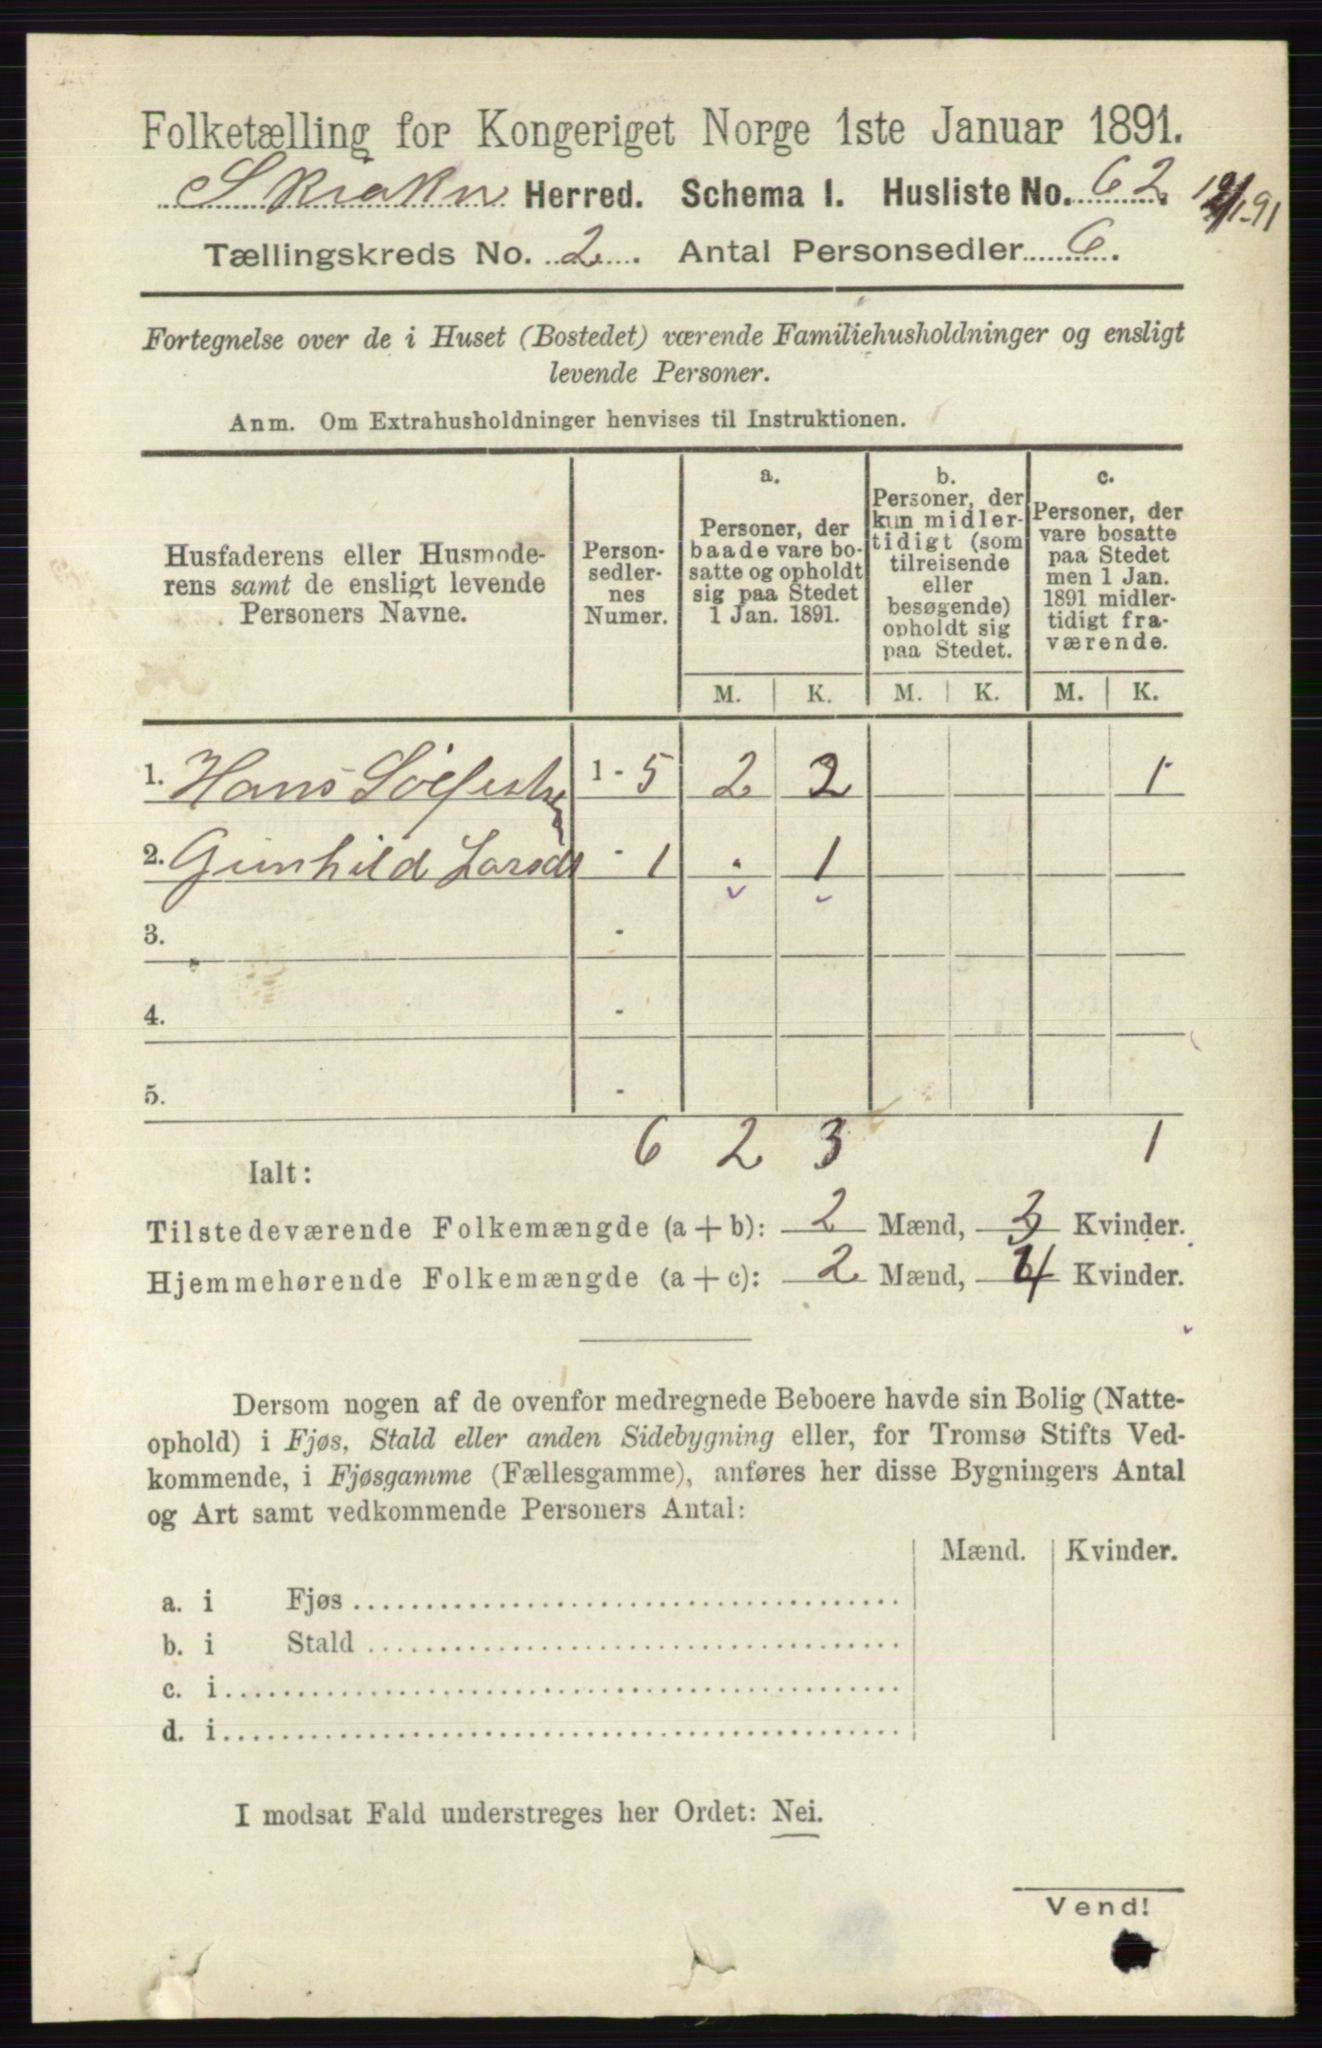 Folketælling for Kongeriget Norge 1ste Januar 1891.
Skiaker Herred. Schema I. Husliste No. 62
Tællingskreds No. 2. Antal Personsedler 6.
Fortegnelse over de i Huset (Bostedet) værende Familiehusholdninger og ensligt
levende Personer.
Anm. Om Extrahusholdninger henvises til Instruktionen.
Husfaderens eller Husmode-
rens samt de ensligt levende
Personers Navne.
Person-
sedler-
nes
Numer.
a.
Personer, der
baade vare bo-
satte og opholdt
sig paa Stedet
1 Jan. 1891.
b.
Personer, der
kun midler-
tidigt (som
tilreisende
eller
besøgende)
opholdt sig
paa Stedet.
c.
Personer, der
vare bosatte
paa Stedet
men 1 Jan.
1891 midler-
tidigt fra-
værende.
M. K. M. K. M. K.
1. Hans 1 - 5 2 2 1
2. Gunhild Larsd - 1 . 1
3. -
4. -
5. -
6 2 3 1
Ialt:
Tilstedeværende Folkemængde (a + b): 2 Mænd, 3 Kvinder.
Hjemmehørende Folkemængde (a + c): 2 Mænd, 4 Kvinder.
Dersom nogen af de ovenfor medregnede Beboere havde sin Bolig (Natte-
ophold) i Fjøs, Stald eller anden Sidebygning eller, for Tromsø Stifts Ved-
kommende, i Fjøsgamme (Fællesgamme), anføres her disse Bygningers Antal
og Art samt vedkommende Personers Antal:
Mænd. Kvinder.
a. i Fjøs
b. i Stald
c. i
d. i
I modsat Fald understreges her Ordet: Nei.
Vend!